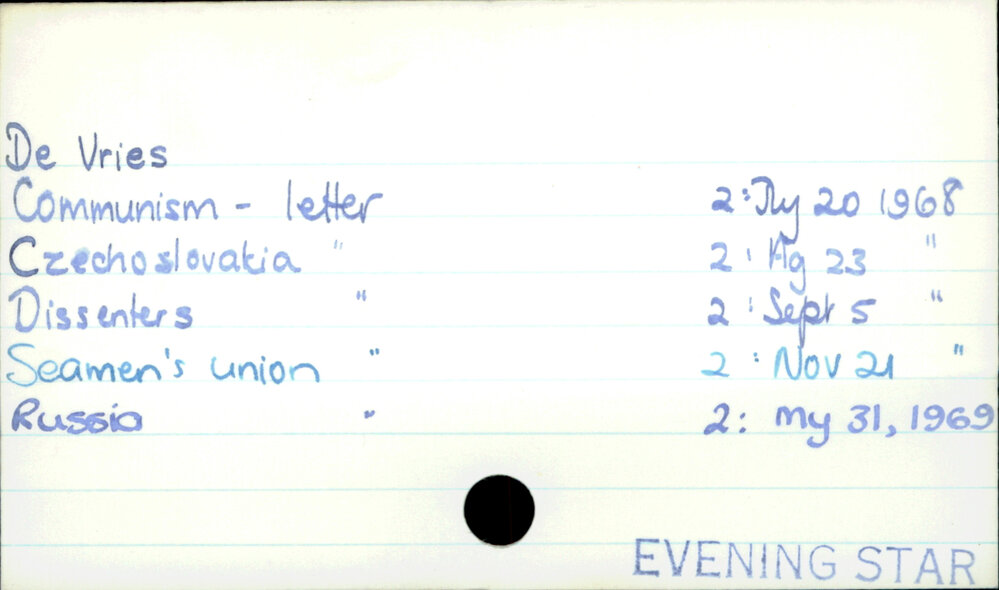 De Vries
Communism - letter 2: Jly 20 1968
Czechoslovakia " 2: Ag 23 "
Dissenters " 2: Sept 5 "
Seamen's union " 2: Nov 21 "
Russia " 2: My 31, 1969
EVENING STAR